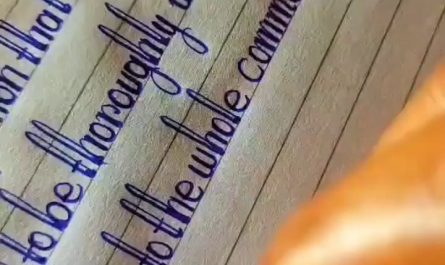 on that
to be thoroughly
to the whole comm